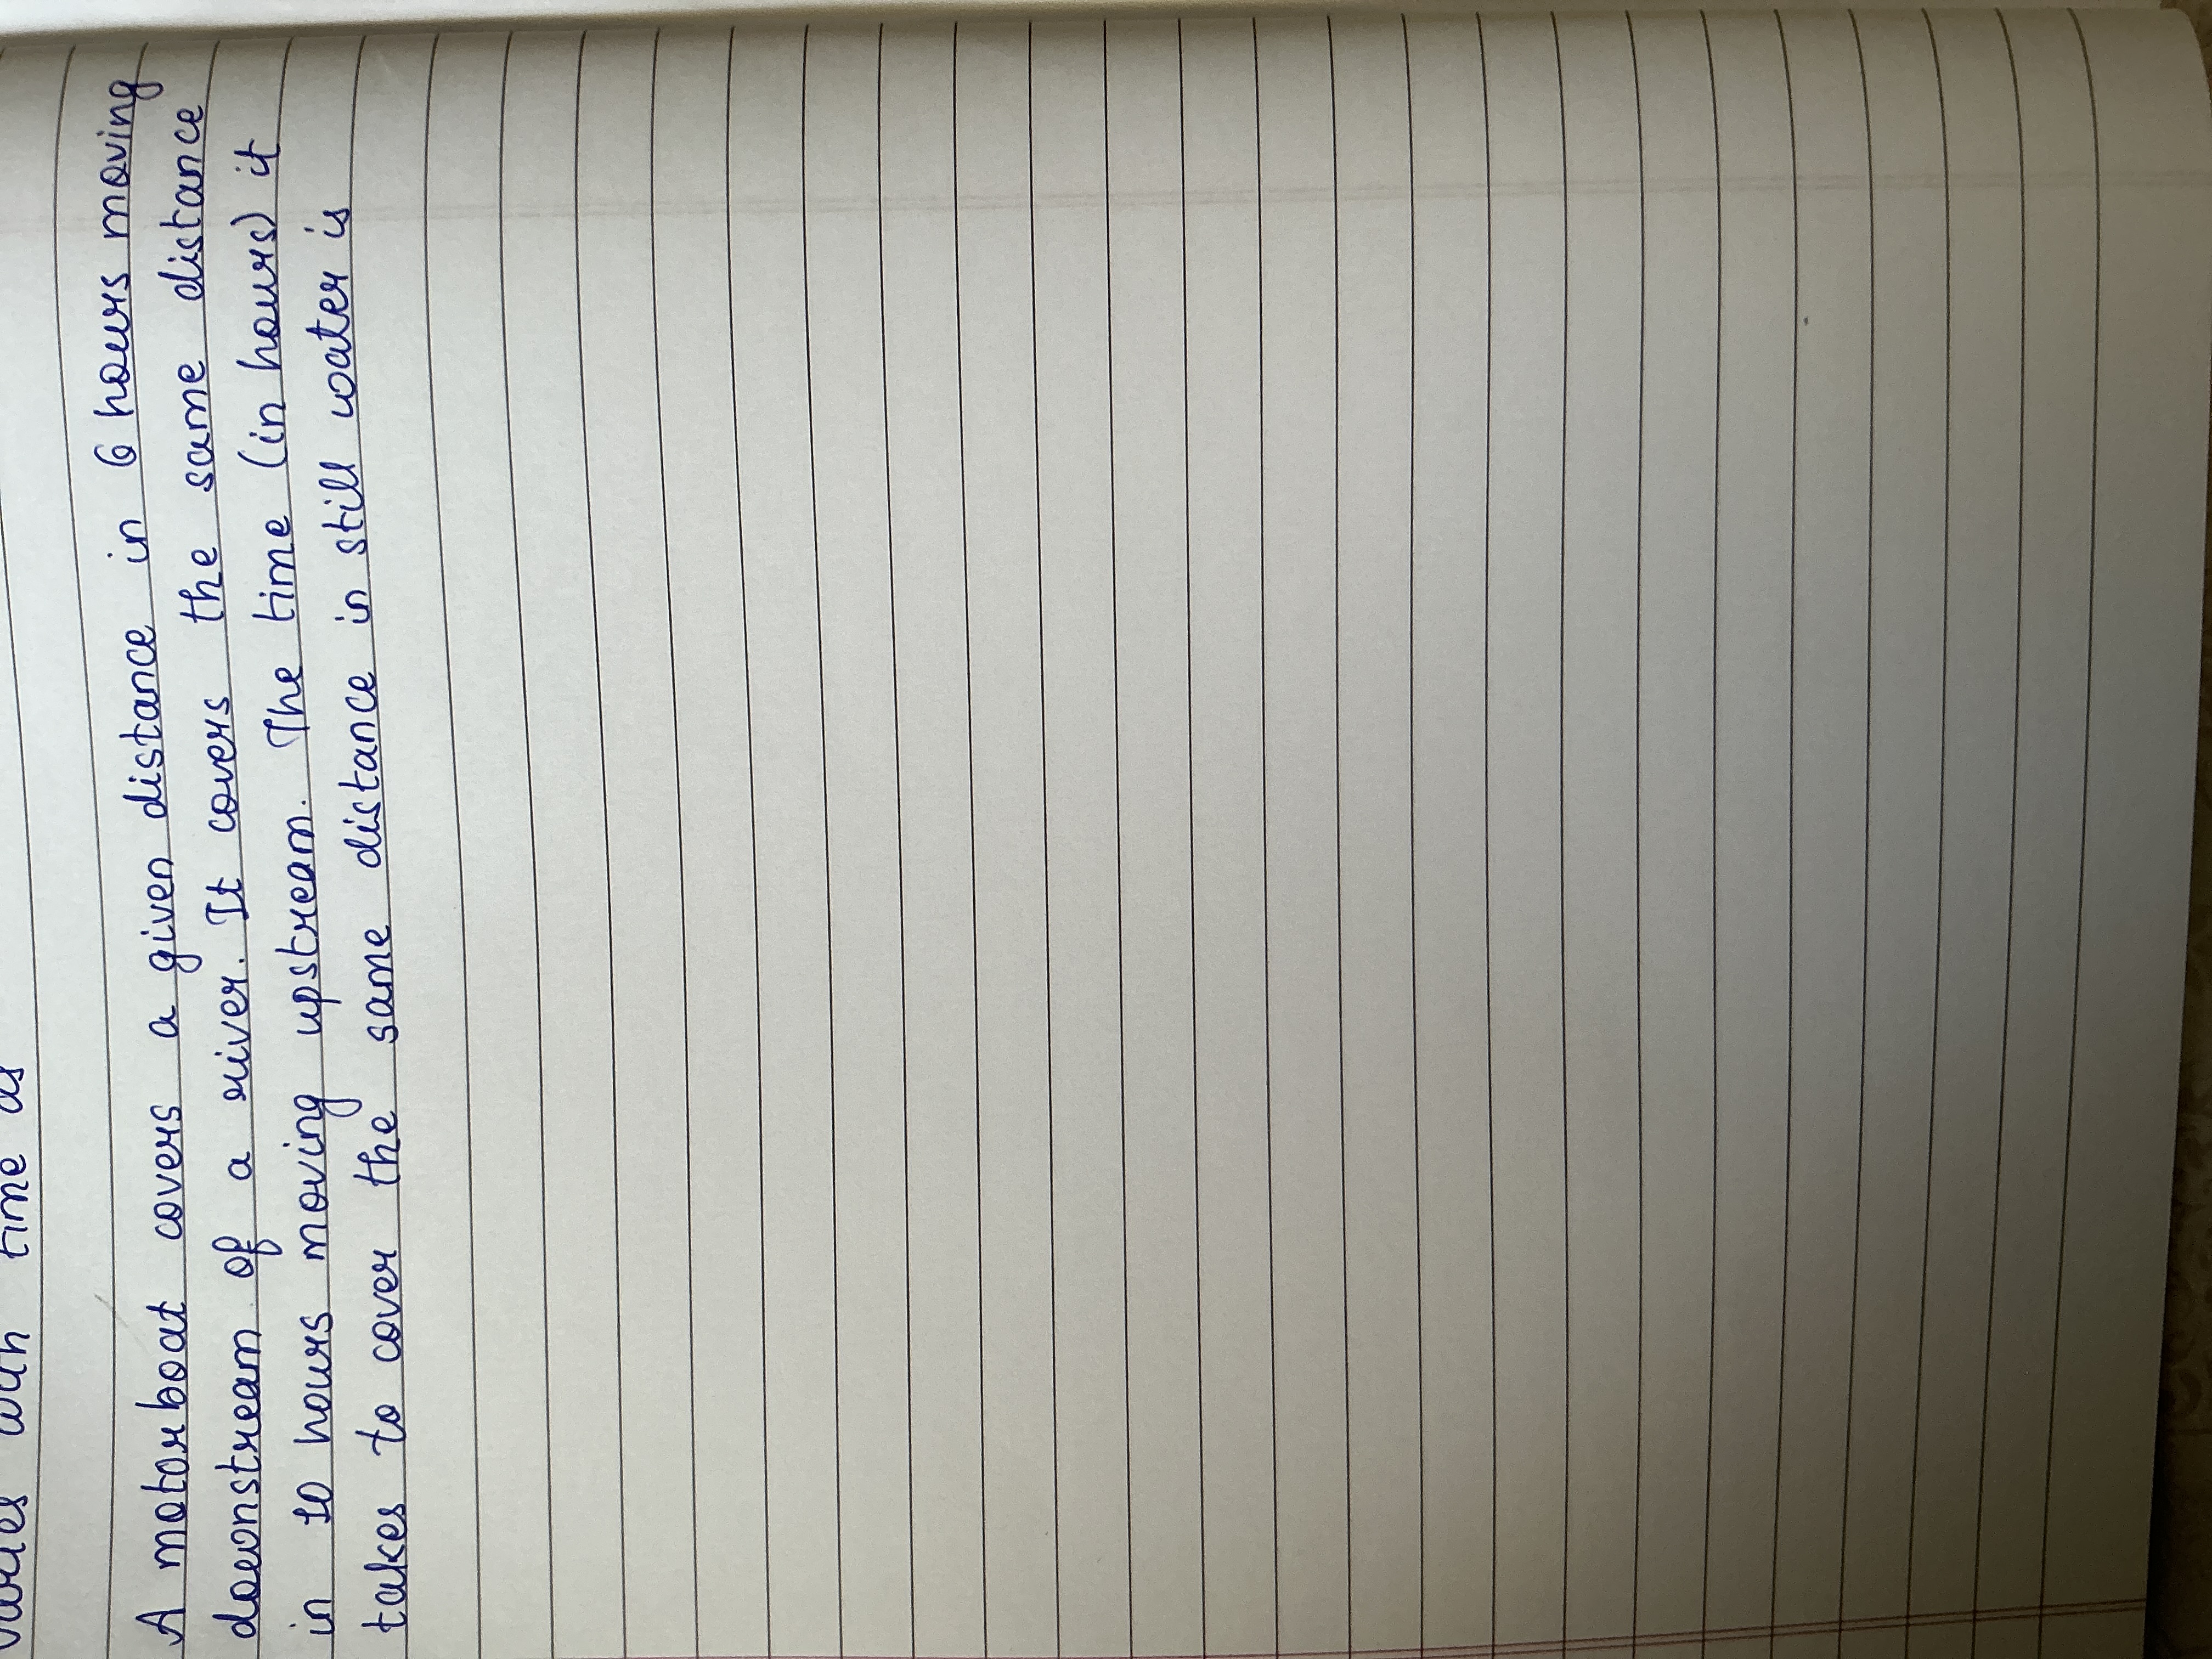 varies with time as
A motorboat covers a given distance in 6 hours moving
downstream of a river. It covers the same distance
in 10 hours moving upstream. The time (in hours) it
takes to cover the same distance in still water is